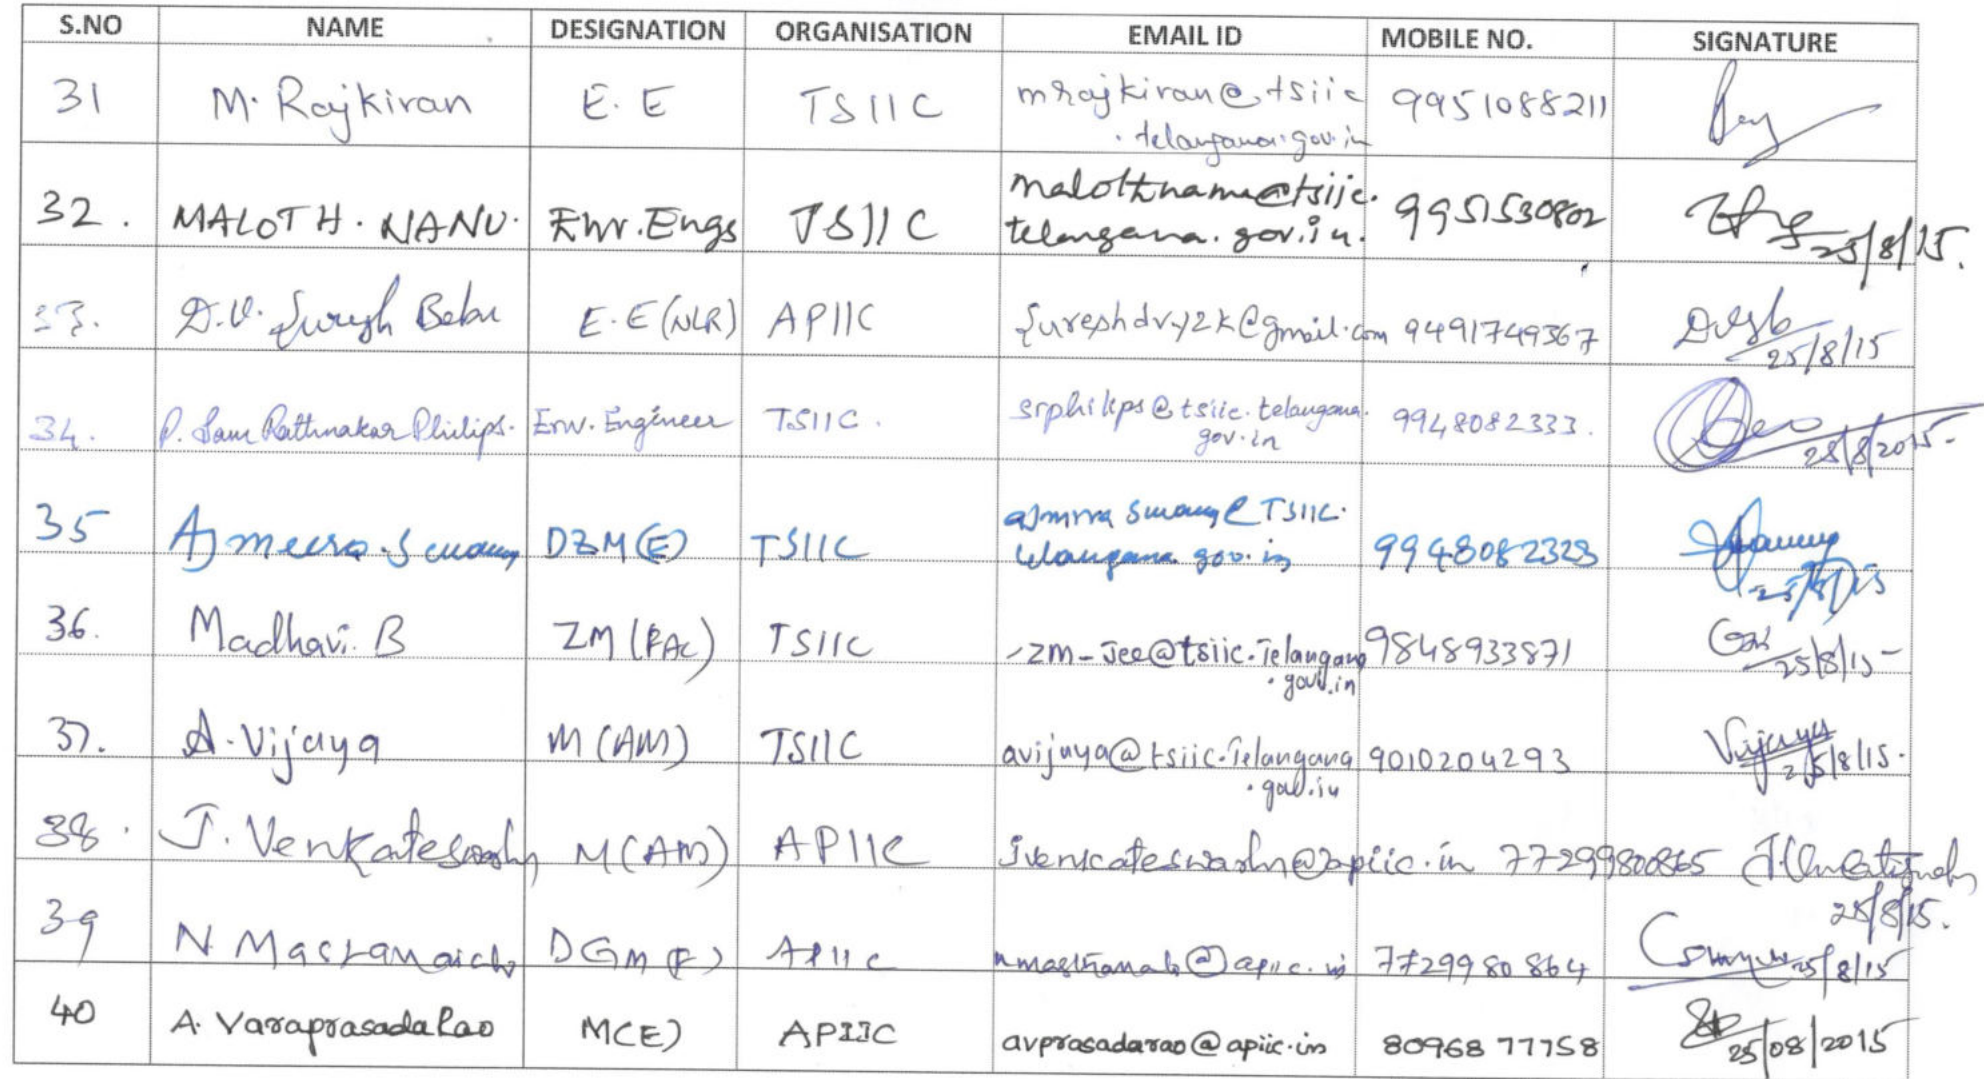 S.NO NAME DESIGNATION ORGANISATION EMAIL ID MOBILE NO. SIGNATURE
31 M. Rajkiran E.E TSIIC mrajkiran@tsiic 9951088211
.telangana.gov.in
32. MALOTH. NANU. Env.Engg TSIIC malothnanu@tsiic. 9951530802
telangana.gov.in. 25/8/15.
33. D.V. Suresh Babu E.E(NLR) APIIC sureshdvy2k@gmail.com 9491749367
25/8/15
34. P. Sam Rathnakar Philips. Env. Engineer TSIIC. srphilips@tsiic.telangana. 9948082333.
gov.in 25/8/2015
35 Ajmeera.Swamy DZM(E) TSIIC TSIIC. 9948082323
telangana.gov.in 25/8/15
36. Madhavi. B ZM (PAC) TSIIC zm-jee@tsiic.Telangana 9848933871
.gov.in 25/8/15
37. A.Vijaya M(AM) TSIIC avijaya@tsiic.Telangana 9010204293 Vijaya
.gov.in 25/8/15.
38. J. Venkateswarlu M(AM) APIIC jvenkateswarlu@apiic.in 7729980865
25/8/15.
39 N Mastanaiah DGM(F) APIIC 7729980864
25/8/15
40 A. Varaprasada Rao M(E) APIIC avprasadarao@apiic.in 8096877758
25/08/2015